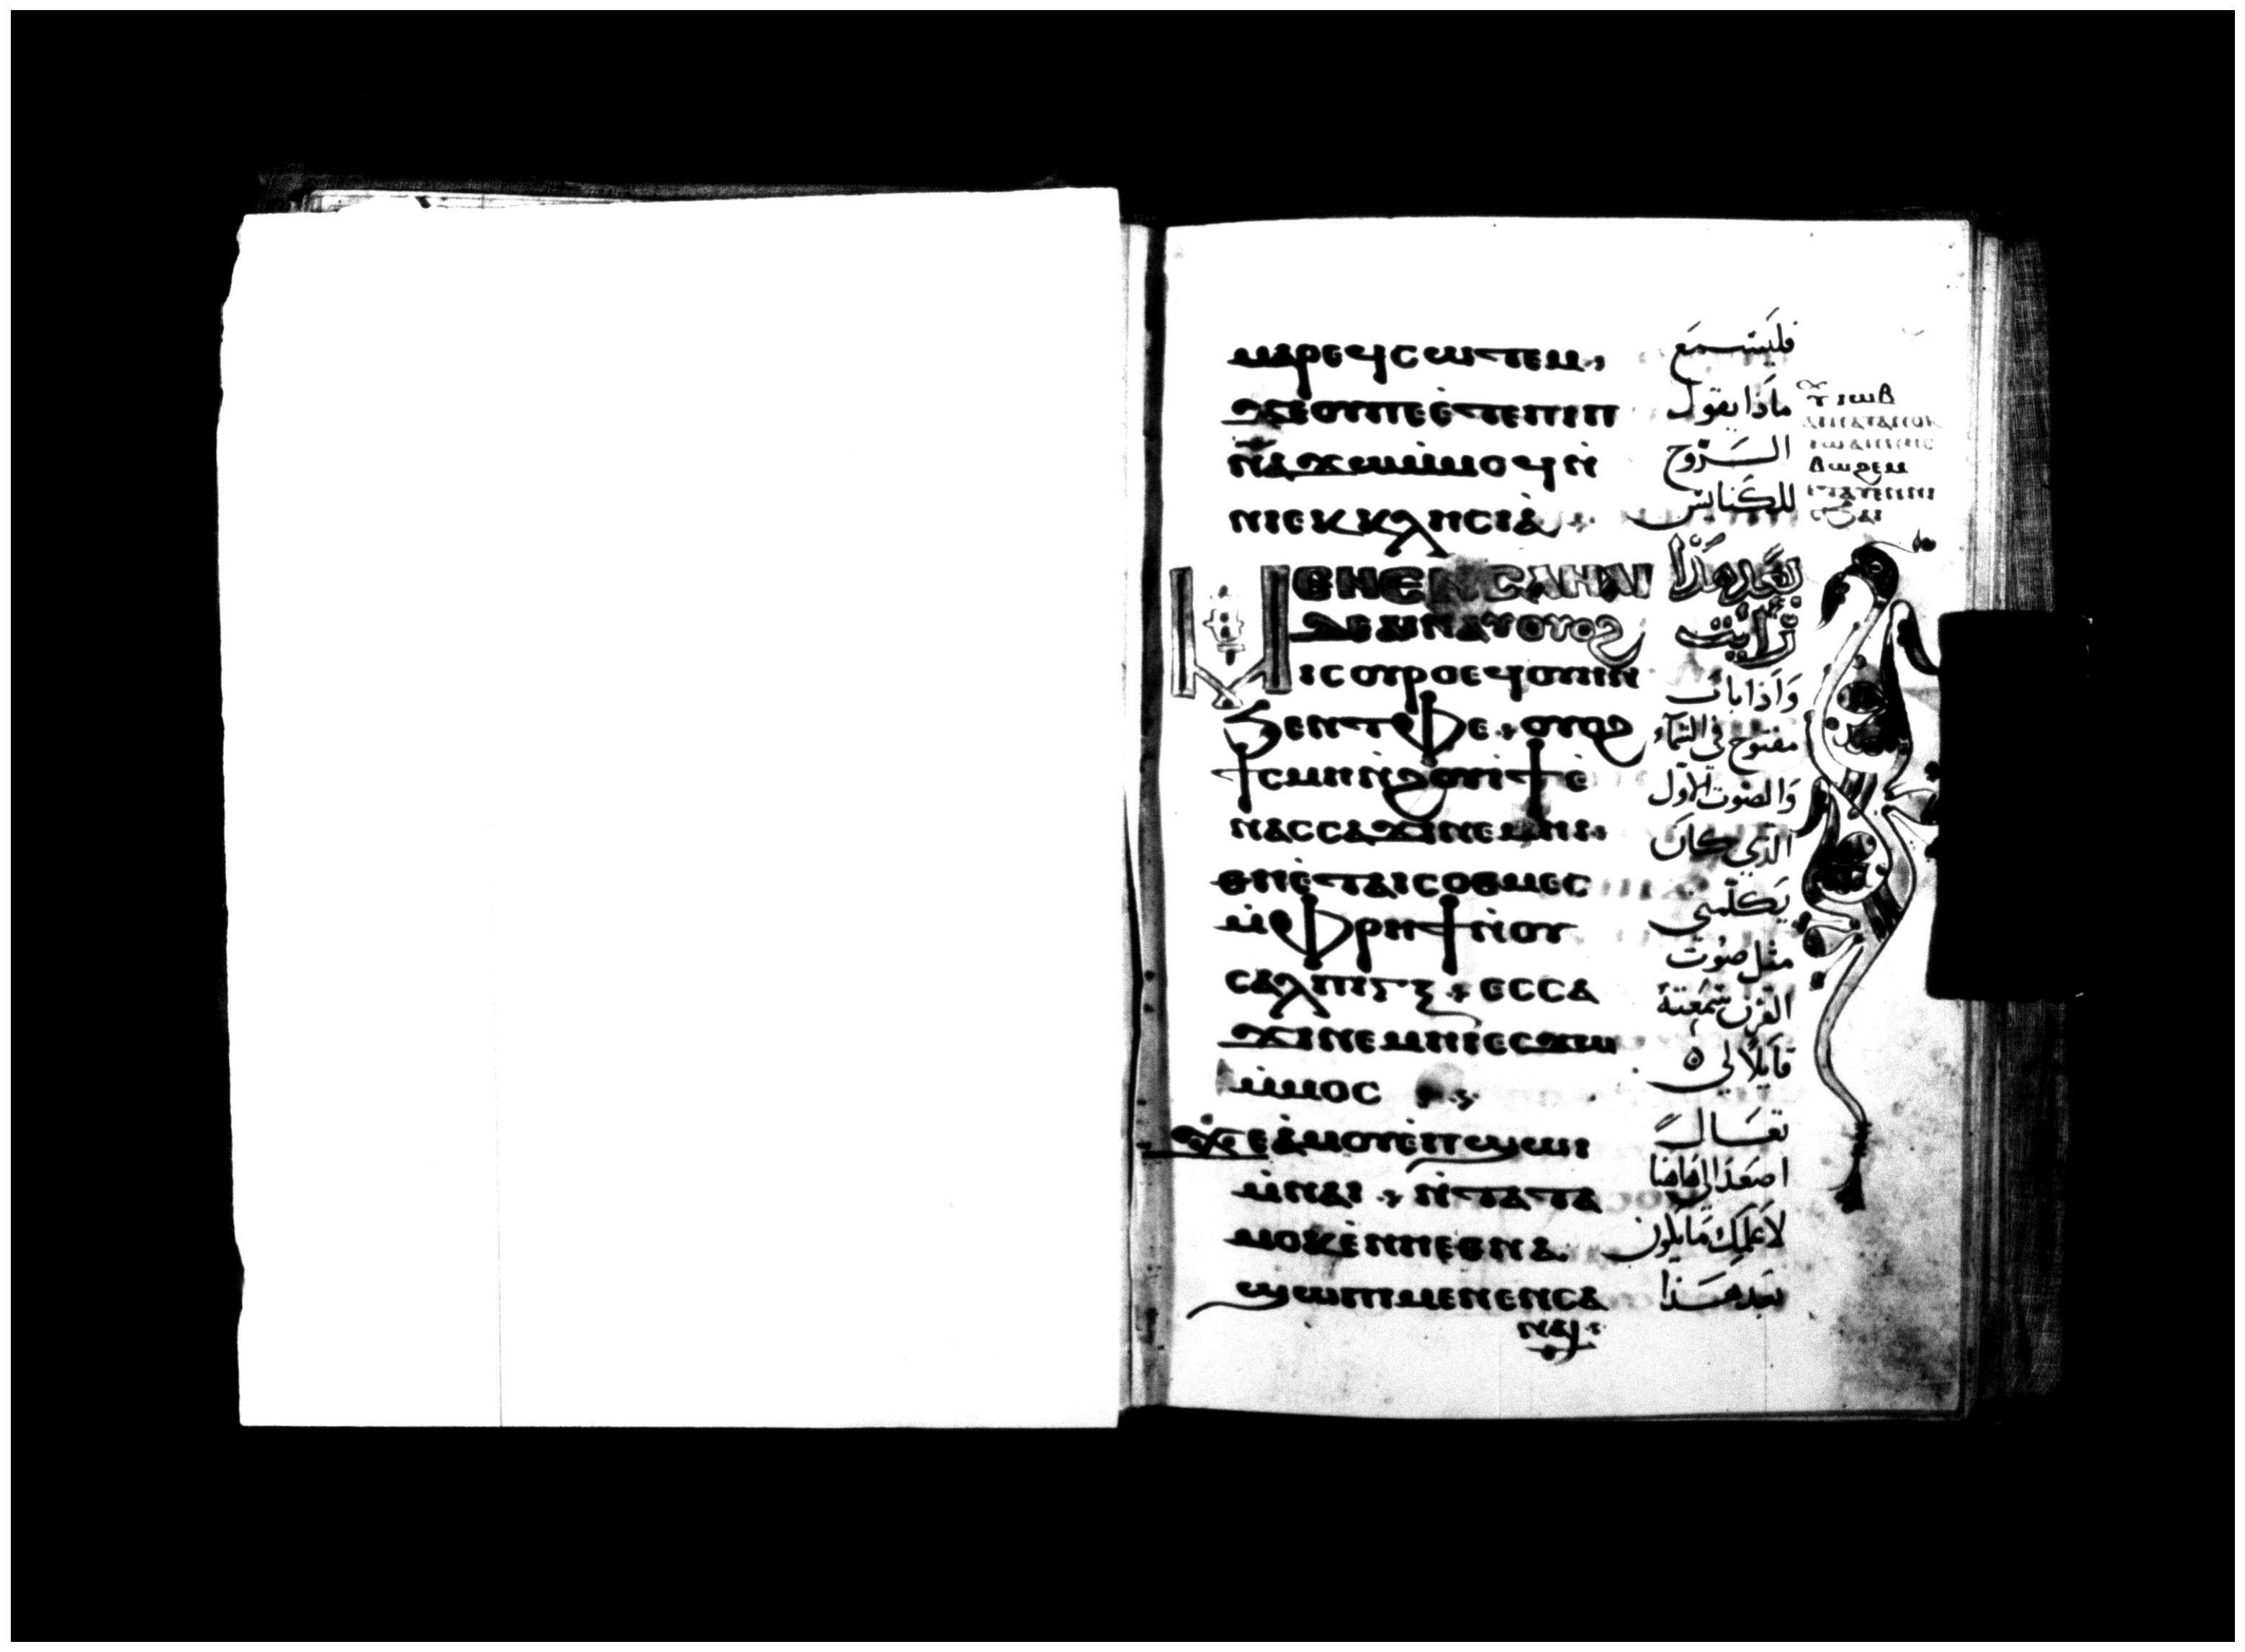 ⲙⲁⲣⲉϥⲥⲱⲧⲉⲙ
ϫⲉⲟⲩⲡⲉⲉ̀ⲧⲉⲡⲓⲡ̅ⲛ̅ⲁ̅
ϫⲱⲙ̀ⲙⲟϥⲛ̀
ⲛⲓⲉⲕⲕⲗⲏⲥⲓⲁ
ⲙⲉⲛⲉⲛⲥⲁⲛⲁⲓ
ⲇⲉⲁⲓⲛⲁⲩⲟⲩⲟϩ
ⲓⲥⲟⲩⲣⲟⲉϥⲟⲩⲏⲛ
ϧⲉⲛⲧⲫⲉ ⲟⲩⲟϩ
ϯⲥⲙⲏⲛ̀ϩⲟⲩⲓϯⲉ̀
ⲛⲁⲥⲥⲁϫⲓⲛⲉⲙⲏⲓ
ⲑⲏⲉ̀ⲧⲁⲓⲥⲟⲑⲙⲉⲥ
ⲙ̀ⲫⲣⲏϯⲛ̀ⲟⲩ
ⲥⲁⲗⲡⲓⲅⲝ ⲉⲥⲥⲁ
ϫⲓⲛⲉⲙⲏⲓⲉⲥϫⲱ
ⲙ̀ⲙⲟⲥ
ϫⲉⲁ̀ⲙⲟⲩⲉ̀ⲡϣⲱⲓ
ⲙ̀ⲛⲁⲓ ⲛ̀ⲧⲁⲧⲁ
ⲙⲟⲕⲉ̀ⲛⲏⲉⲑⲛⲁ
ϣⲱⲡⲓⲙⲉⲛⲉⲛⲥⲁ
ⲛⲁⲓ
فليسمع
ماذا يقول
الروح
للكنايس
بعد هذا
رايت
واذا باب
مفتوح في السماء
والصوت الاول
الذي كان
يكلمني
مثل صوت
القرن سمعته
قايلا لي
تعال
اصعد الى هاهنا
لاعلمك ما يكون
بعد هذا